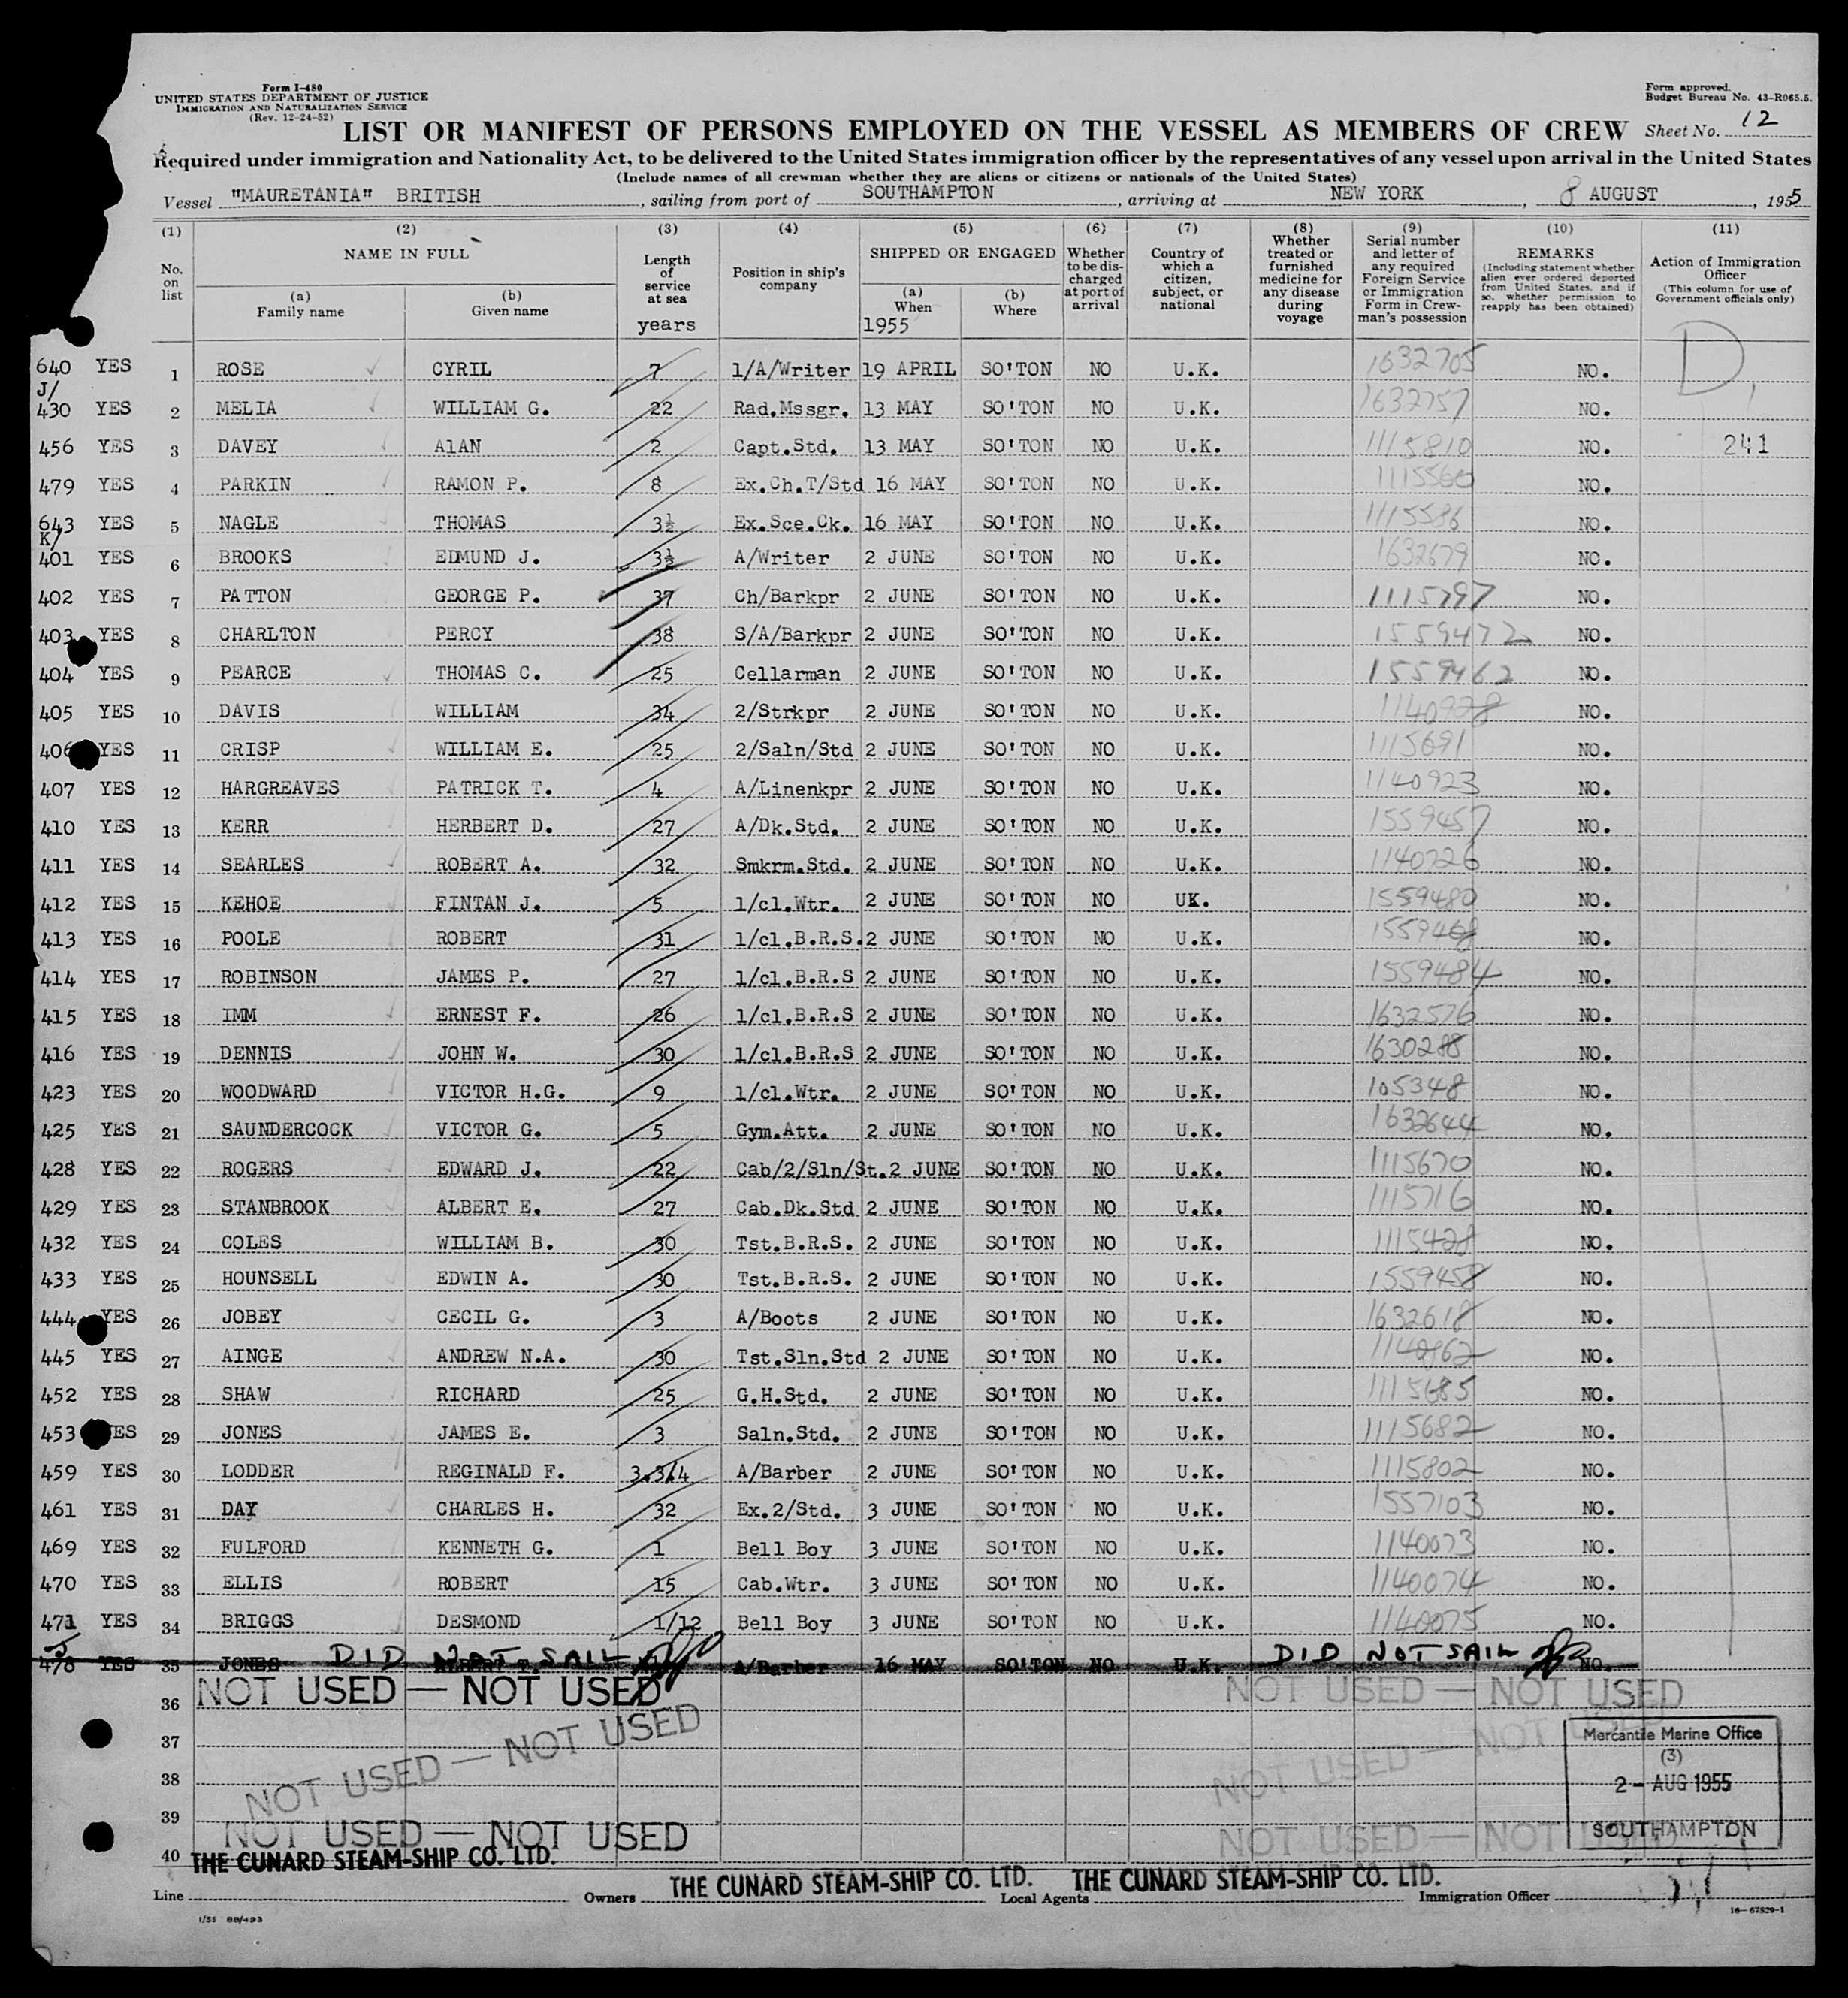 Form I-480
UNITED STATES DEPARTMENT OF JUSTICE
IMMIGRATION AND NATURALIZATION SERVICE
(Rev. 12-24-52)
Form approved.
Budget Bureau No. 43-R065.5.
LIST OR MANIFEST OF PERSONS EMPLOYED ON THE VESSEL AS MEMBERS OF CREW Sheet No. 12
Required under immigration and Nationality Act, to be delivered to the United States immigration officer by the representatives of any vessel upon arrival in the United States
(Include names of all crewman whether they are aliens or citizens or nationals of the United States)
Vessel "MAURETANIA" BRITISH, sailing from port of SOUTHAMPTON, arriving at NEW YORK, 8 AUGUST, 1955
(1) (2) (3) (4) (5) (6) (7) (8) (9) (10) (11)
No. on list
NAME IN FULL
(a) Family name
(b) Given name
Length of service at sea
years
Position in ship's company
SHIPPED OR ENGAGED
(a) When
1955
(b) Where
Whether to be discharged at port of arrival
Country of which a citizen, subject, or national
Whether treated or furnished medicine for any disease during voyage
Serial number and letter of any required Foreign Service or Immigration Form in Crewman's possession
REMARKS
(Including statement whether alien ever ordered deported from United States, and if so, whether permission to reapply has been obtained)
Action of Immigration Officer
(This column for use of Government officials only)
640 YES 1 ROSE CYRIL 7 1/A/Writer 19 APRIL SO'TON NO U.K. 1632705 NO. D
J/
430 YES 2 MELIA WILLIAM G. 22 Rad.Mssgr. 13 MAY SO'TON NO U.K. 1632757 NO.
456 YES 3 DAVEY AlAN 2 Capt.Std. 13 MAY SO'TON NO U.K. 1115810 NO. 241
479 YES 4 PARKIN RAMON P. 8 Ex.Ch.T/Std 16 MAY SO'TON NO U.K. 1115560 NO.
643 YES 5 NAGLE THOMAS 3½ Ex.Sce.Ck. 16 MAY SO'TON NO U.K. 1115586 NO.
K/
401 YES 6 BROOKS EDMUND J. 3½ A/Writer 2 JUNE SO'TON NO U.K. 1632679 NO.
402 YES 7 PATTON GEORGE P. 37 Ch/Barkpr 2 JUNE SO'TON NO U.K. 1115797 NO.
403 YES 8 CHARLTON PERCY 38 S/A/Barkpr 2 JUNE SO'TON NO U.K. 1559472 NO.
404 YES 9 PEARCE THOMAS C. 25 Cellarman 2 JUNE SO'TON NO U.K. 1559462 NO.
405 YES 10 DAVIS WILLIAM 34 2/Strkpr 2 JUNE SO'TON NO U.K. 1140928 NO.
406 YES 11 CRISP WILLIAM E. 25 2/Saln/Std 2 JUNE SO'TON NO U.K. 1115691 NO.
407 YES 12 HARGREAVES PATRICK T. 4 A/Linenkpr 2 JUNE SO'TON NO U.K. 1140923 NO.
410 YES 13 KERR HERBERT D. 27 A/Dk.Std. 2 JUNE SO'TON NO U.K. 1559457 NO.
411 YES 14 SEARLES ROBERT A. 32 Smkrm.Std. 2 JUNE SO'TON NO U.K. 1140726 NO.
412 YES 15 KEHOE FINTAN J. 5 1/cl.Wtr. 2 JUNE SO'TON NO UK. 1559480 NO.
413 YES 16 POOLE ROBERT 31 1/cl.B.R.S. 2 JUNE SO'TON NO U.K. 1559468 NO.
414 YES 17 ROBINSON JAMES P. 27 1/cl.B.R.S 2 JUNE SO'TON NO U.K. 1559484 NO.
415 YES 18 IMM ERNEST F. 26 1/cl.B.R.S 2 JUNE SO'TON NO U.K. 1632576 NO.
416 YES 19 DENNIS JOHN W. 30 1/cl.B.R.S 2 JUNE SO'TON NO U.K. 1630288 NO.
423 YES 20 WOODWARD VICTOR H.G. 9 1/cl.Wtr. 2 JUNE SO'TON NO U.K. 105348 NO.
425 YES 21 SAUNDERCOCK VICTOR G. 5 Gym.Att. 2 JUNE SO'TON NO U.K. 1632644 NO.
428 YES 22 ROGERS EDWARD J. 22 Cab/2/Sln/St. 2 JUNE SO'TON NO U.K. 1115670 NO.
429 YES 23 STANBROOK ALBERT E. 27 Cab.Dk.Std 2 JUNE SO'TON NO U.K. 1115716 NO.
432 YES 24 COLES WILLIAM B. 30 Tst.B.R.S. 2 JUNE SO'TON NO U.K. 1115428 NO.
433 YES 25 HOUNSELL EDWIN A. 30 Tst.B.R.S. 2 JUNE SO'TON NO U.K. 1559458 NO.
444 YES 26 JOBEY CECIL G. 3 A/Boots 2 JUNE SO'TON NO U.K. 1632618 NO.
445 YES 27 AINGE ANDREW N.A. 30 Tst.Sln.Std 2 JUNE SO'TON NO U.K. 1140862 NO.
452 YES 28 SHAW RICHARD 25 G.H.Std. 2 JUNE SO'TON NO U.K. 1115685 NO.
453 YES 29 JONES JAMES E. 3 Saln.Std. 2 JUNE SO'TON NO U.K. 1115682 NO.
459 YES 30 LODDER REGINALD F. 3.3/4 A/Barber 2 JUNE SO'TON NO U.K. 1115802 NO.
461 YES 31 DAY CHARLES H. 32 Ex.2/Std. 3 JUNE SO'TON NO U.K. 1557103 NO.
469 YES 32 FULFORD KENNETH G. 1 Bell Boy 3 JUNE SO'TON NO U.K. 1140073 NO.
470 YES 33 ELLIS ROBERT 15 Cab.Wtr. 3 JUNE SO'TON NO U.K. 1140074 NO.
471 YES 34 BRIGGS DESMOND 1/12 Bell Boy 3 JUNE SO'TON NO U.K. 1140075 NO.
J
478 YES 35 JONES DID NOT SAIL A/Barber 16 MAY SO'TON NO U.K. DID NOT SAIL NO.
36 NOT USED — NOT USED NOT USED — NOT USED
37 NOT USED — NOT USED NOT USED — NOT USED
38
39 NOT USED — NOT USED NOT USED — NOT USED
40
Mercantile Marine Office
(3)
2 - AUG 1955
SOUTHAMPTON
Line THE CUNARD STEAM-SHIP CO. LTD. Owners THE CUNARD STEAM-SHIP CO. LTD. Local Agents THE CUNARD STEAM-SHIP CO. LTD. Immigration Officer
1/55 BB/493
16—67829-1